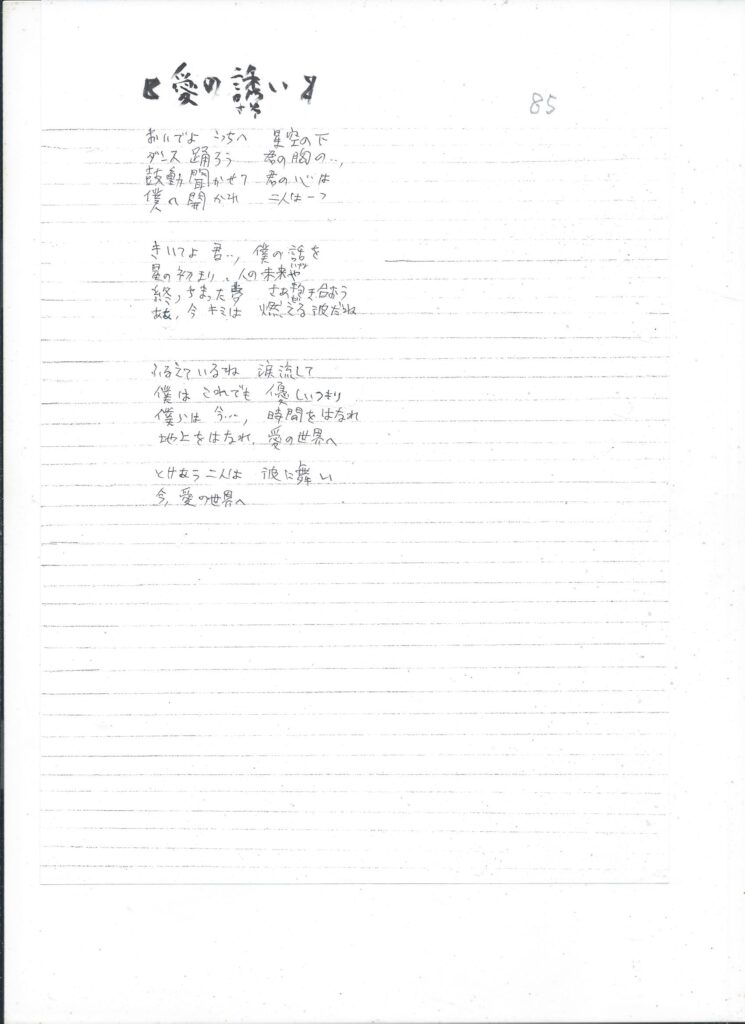 『愛の誘い』
さそ
85
おいでよ こっちへ 星空の下
ダンス踊ろう 君の胸の…,
鼓動聞かせて 君の心は
僕へ開かれ 二人は一つ
きいてよ 君…, 僕の話を
星の初まり、人の未来や
終っちまった夢 さあ抱き合おう
今 キミは 燃える波だね
ふるえているね 涙流して
僕は これでも 優しいつもり
僕らは 今…, 時間をはなれ
地上をはなれ, 愛の世界へ
とけあう二人は 波に舞い
今, 愛の世界へ